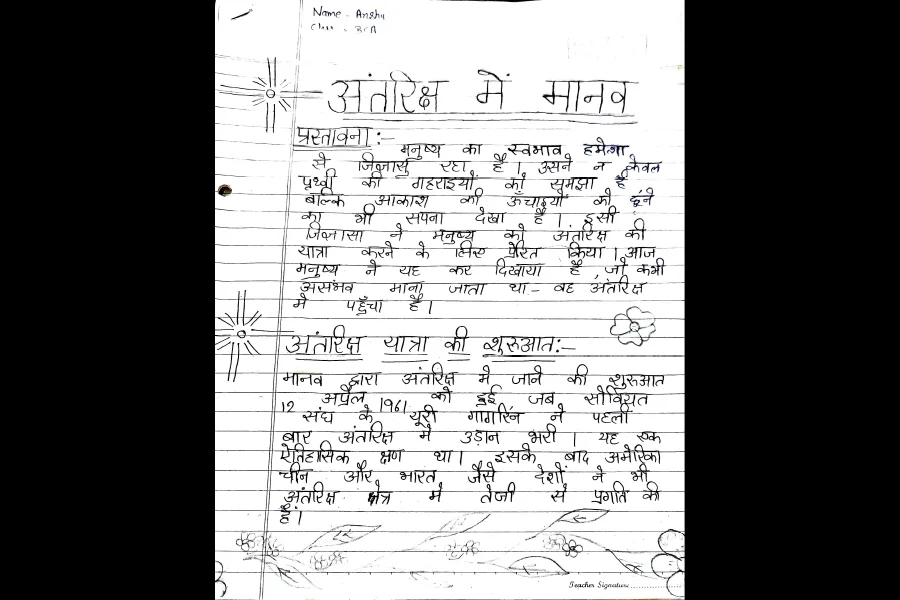 Name - Anshu
Class - BCA
अंतरिक्ष में मानव
प्रस्तावना :-
मनुष्य का स्वभाव हमेशा
से जिज्ञासु रहा है। उसने न केवल
पृथ्वी की गहराइयों को समझा है
बल्कि आकाश की ऊँचाइयों को छूने
का भी सपना देखा है। इसी
जिज्ञासा ने मनुष्य को अंतरिक्ष की
यात्रा करने के लिए प्रेरित किया। आज
मनुष्य ने यह कर दिखाया है, जो कभी
असंभव माना जाता था - वह अंतरिक्ष
में पहुँचा है।
अंतरिक्ष यात्रा की शुरुआत:-
मानव द्वारा अंतरिक्ष में जाने की शुरुआत
12 अप्रैल 1961 को हुई जब सोवियत
संघ के यूरी गागरिन ने पहली
बार अंतरिक्ष में उड़ान भरी। यह एक
ऐतिहासिक क्षण था। इसके बाद अमेरिका
चीन और भारत जैसे देशों ने भी
अंतरिक्ष क्षेत्र में तेजी से प्रगति की
है।
Teacher Signature